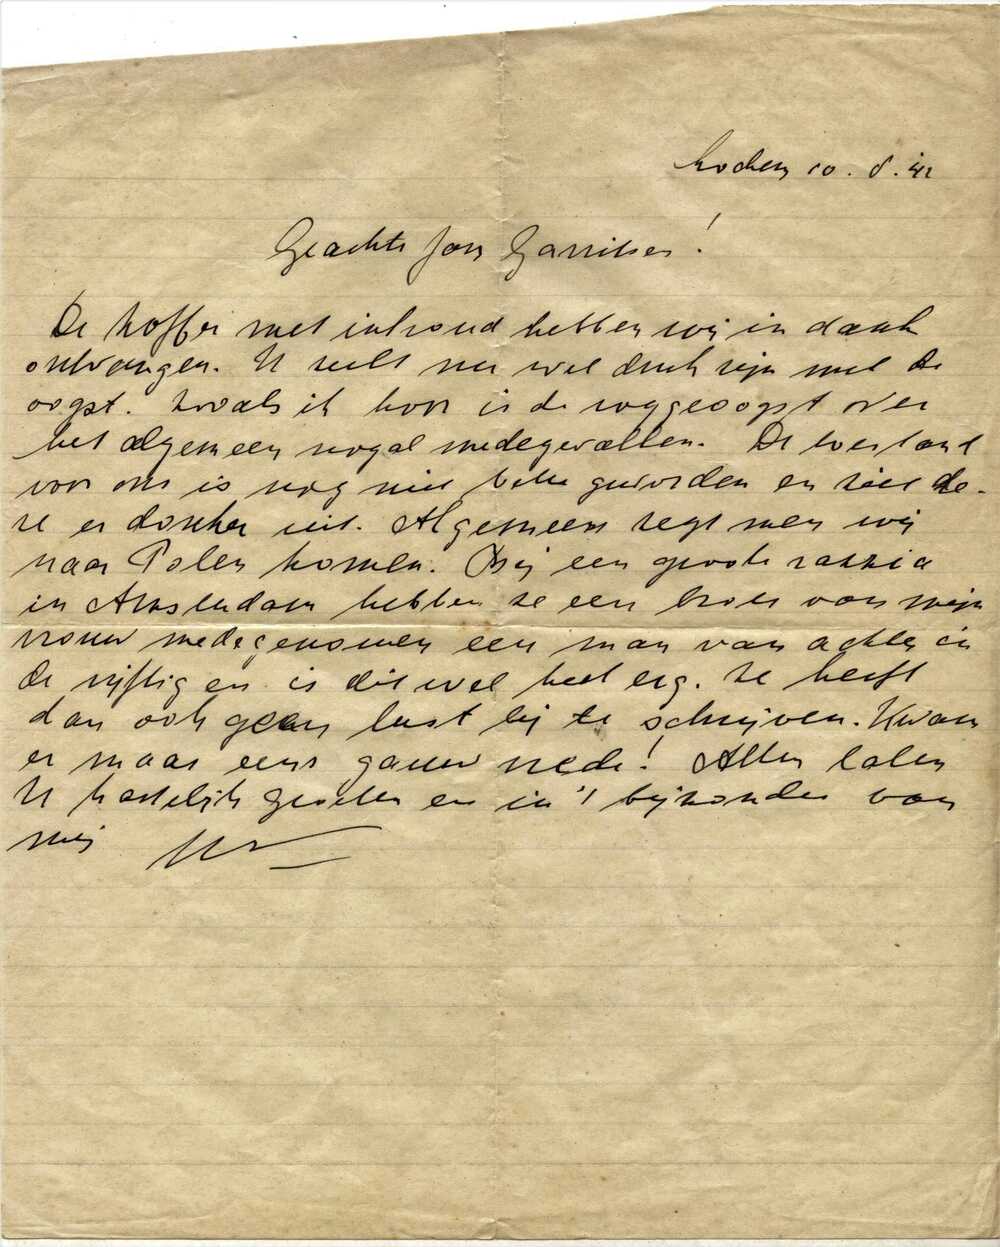 Lochem 10.8.'42
Geachte fam Garritsen!
De koffer met inhoud hebben wij in dank
ontvangen. U zult nu wel druk zijn met de
oogst. Zooals ik hoor is de roggeoogst over
het algemeen nogal medegevallen. De toestand
voor ons is nog niet beter geworden en ziet de-
ze er donker uit. Algemeen zegt men wij
naar Polen komen. Bij een groote razzia
in Amsterdam hebben ze een broer van mijn
vrouw medegenomen een man van achter in
de vijftig en is dit wel heel erg. Ze heeft
dan ook geen lust bij te schrijven. Kwam
er maar eens gauw vrede! Allen laten
U hartelijk groeten en in 't bijzonder van
mij